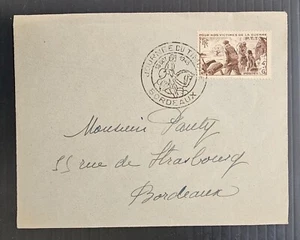 JOURNÉE DU TIMBRE
BORDEAUX
POUR LES VICTIMES DE LA GUERRE
Monsieur Pauty
55 rue de Strasbourg
Bordeaux